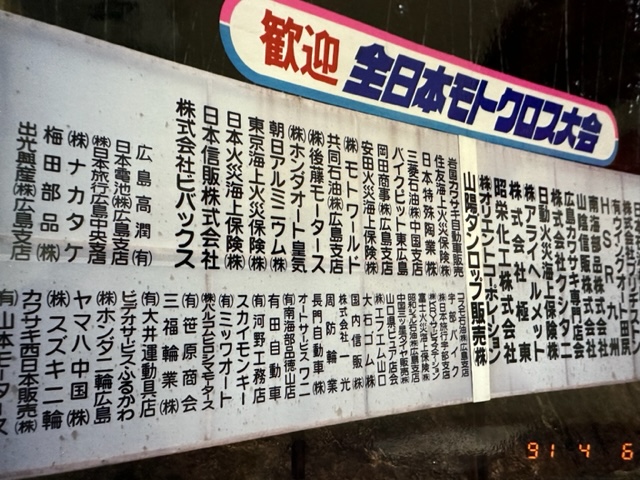 歓迎 全日本モトクロス大会
HSR九州
南海部品株式会社
山陰信販株式会社
広島カワサキ専門店会
株式会社サクシタニ
日動火災海上保険(株)
(株)アライヘルメット
株式会社極東
昭栄化工株式会社
(株)オリエントコーポレーション
山陽ダンロップ販売(株)
岩国カワサキ自動車販売
住友海上火災保険(株)
日本特殊陶業(株)
三菱石油(株)中国支店
バイクピット東広島
岡田商事(株)広島支店
安田火災海上保険(株)
(株)モトワールド
共同石油(株)広島支店
(株)後藤モータース
(株)ホンダオート皇気
朝日アルミニウム(株)
東京海上火災保険(株)
日本火災海上保険(株)
日本信販株式会社
株式会社ビバックス
広島高潤(有)
日本電池(株)広島支店
(株)日本旅行広島中央支店
(株)ナカタケ
梅田部品(株)
出光興産(株)広島支店
コスモ石油(株)広島支店
宇部バイク
(株)日本旅行宇部支店
富士火災海上保険(株)
昭和シェル石油(株)広島支店
中国三菱ふそう
山口県ピレア店会
(株)エフエム山口
大石ゴム(株)
国内信販(株)
株式会社一光
周防輪業
長門自動車(株)
オートサービスワニ
(有)南海部品徳山店
有田自動車
(有)河野工務店
スカイモンキー
(有)ミツワオート
(株)ベルコヒロシマモータース
(有)笹原商会
三福輪業(株)
(有)大井運動具店
ビデオサービスふるかわ
(株)ホンダ二輪広島
ヤマハ中国(株)
(株)スズキ二輪
カワサキ西日本販売(株)
(有)山本モータース
91 4 6